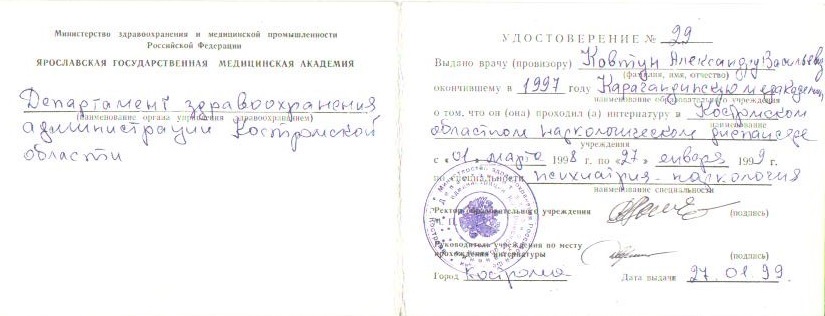 Министерство здравоохранения и медицинской промышленности
Российской Федерации
ЯРОСЛАВСКАЯ ГОСУДАРСТВЕННАЯ МЕДИЦИНСКАЯ АКАДЕМИЯ
Департамент здравоохранения
(наименование органа управления здравоохранением)
администрации Костромской
области
УДОСТОВЕРЕНИЕ № 29
Выдано врачу (провизору) Ковтун Александру Васильевичу
(фамилия, имя, отчество)
окончившему в 1997 году Карагандинскую медакадемию,
наименование образовательного учреждения
о том, что он (она) проходил (а) интернатуру в Костромском
наименование
областном наркологическом диспансере
учреждения
с «01» марта 1998 г. по «27» января 1999 г.
по специальности психиатрия-наркология
наименование специальности
Ректор образовательного учреждения (подпись)
Руководитель учреждения по месту
прохождения интернатуры (подпись)
Город Кострома Дата выдачи 27.01.99.